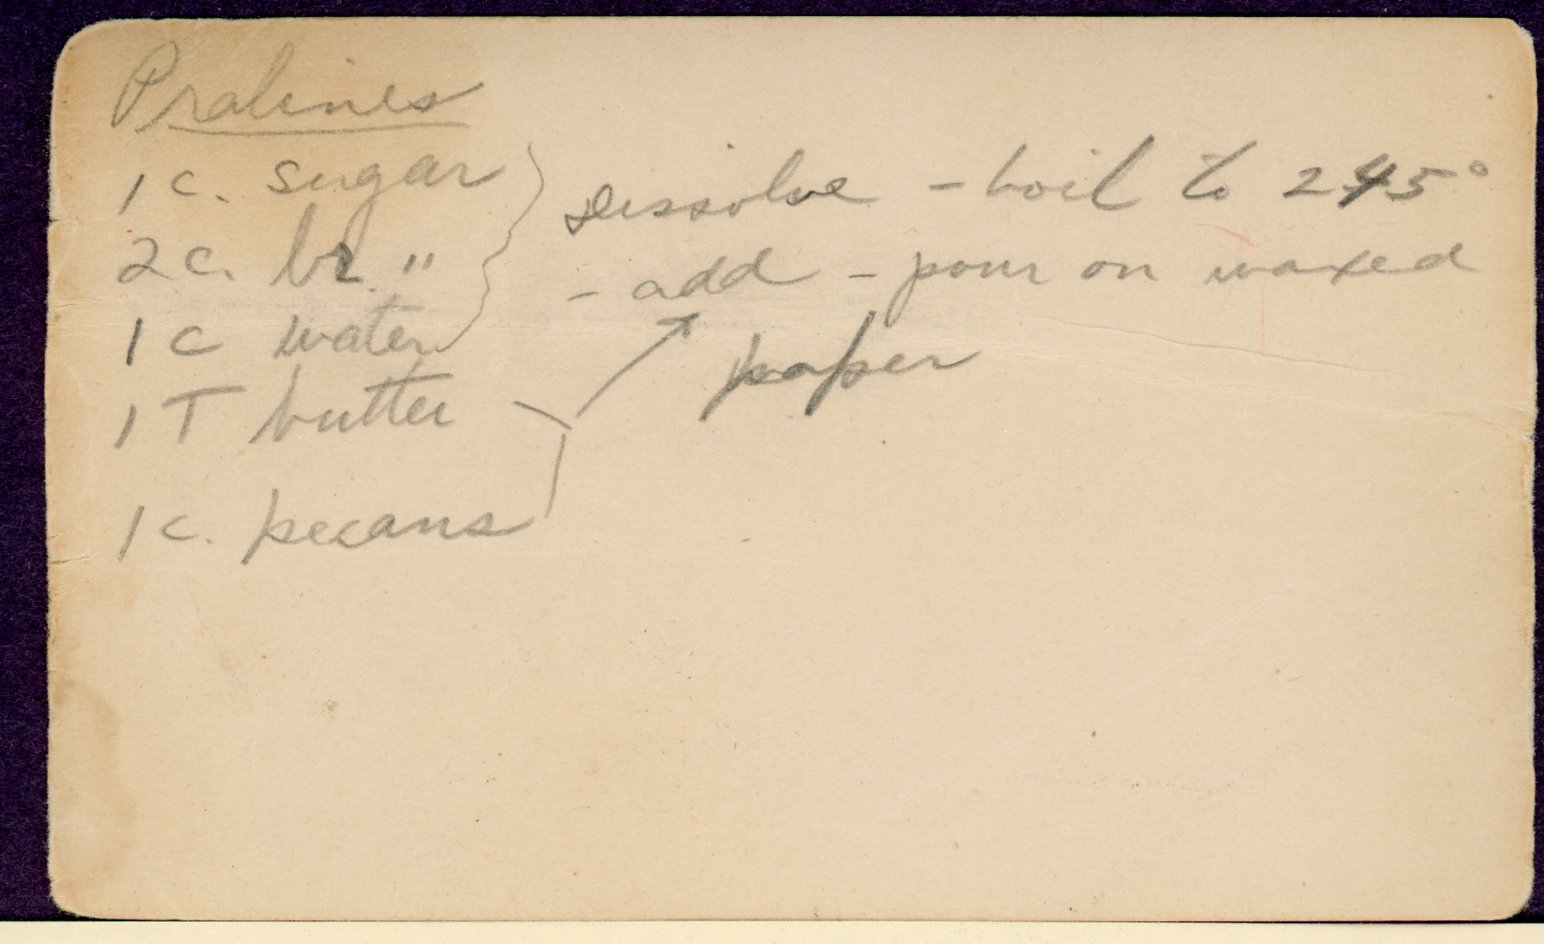 Pralines
1 c. sugar
2 c. br. "
1 c water
1 T butter
1 c. pecans
Dissolve - boil to 245°
- add - pour on waxed
paper